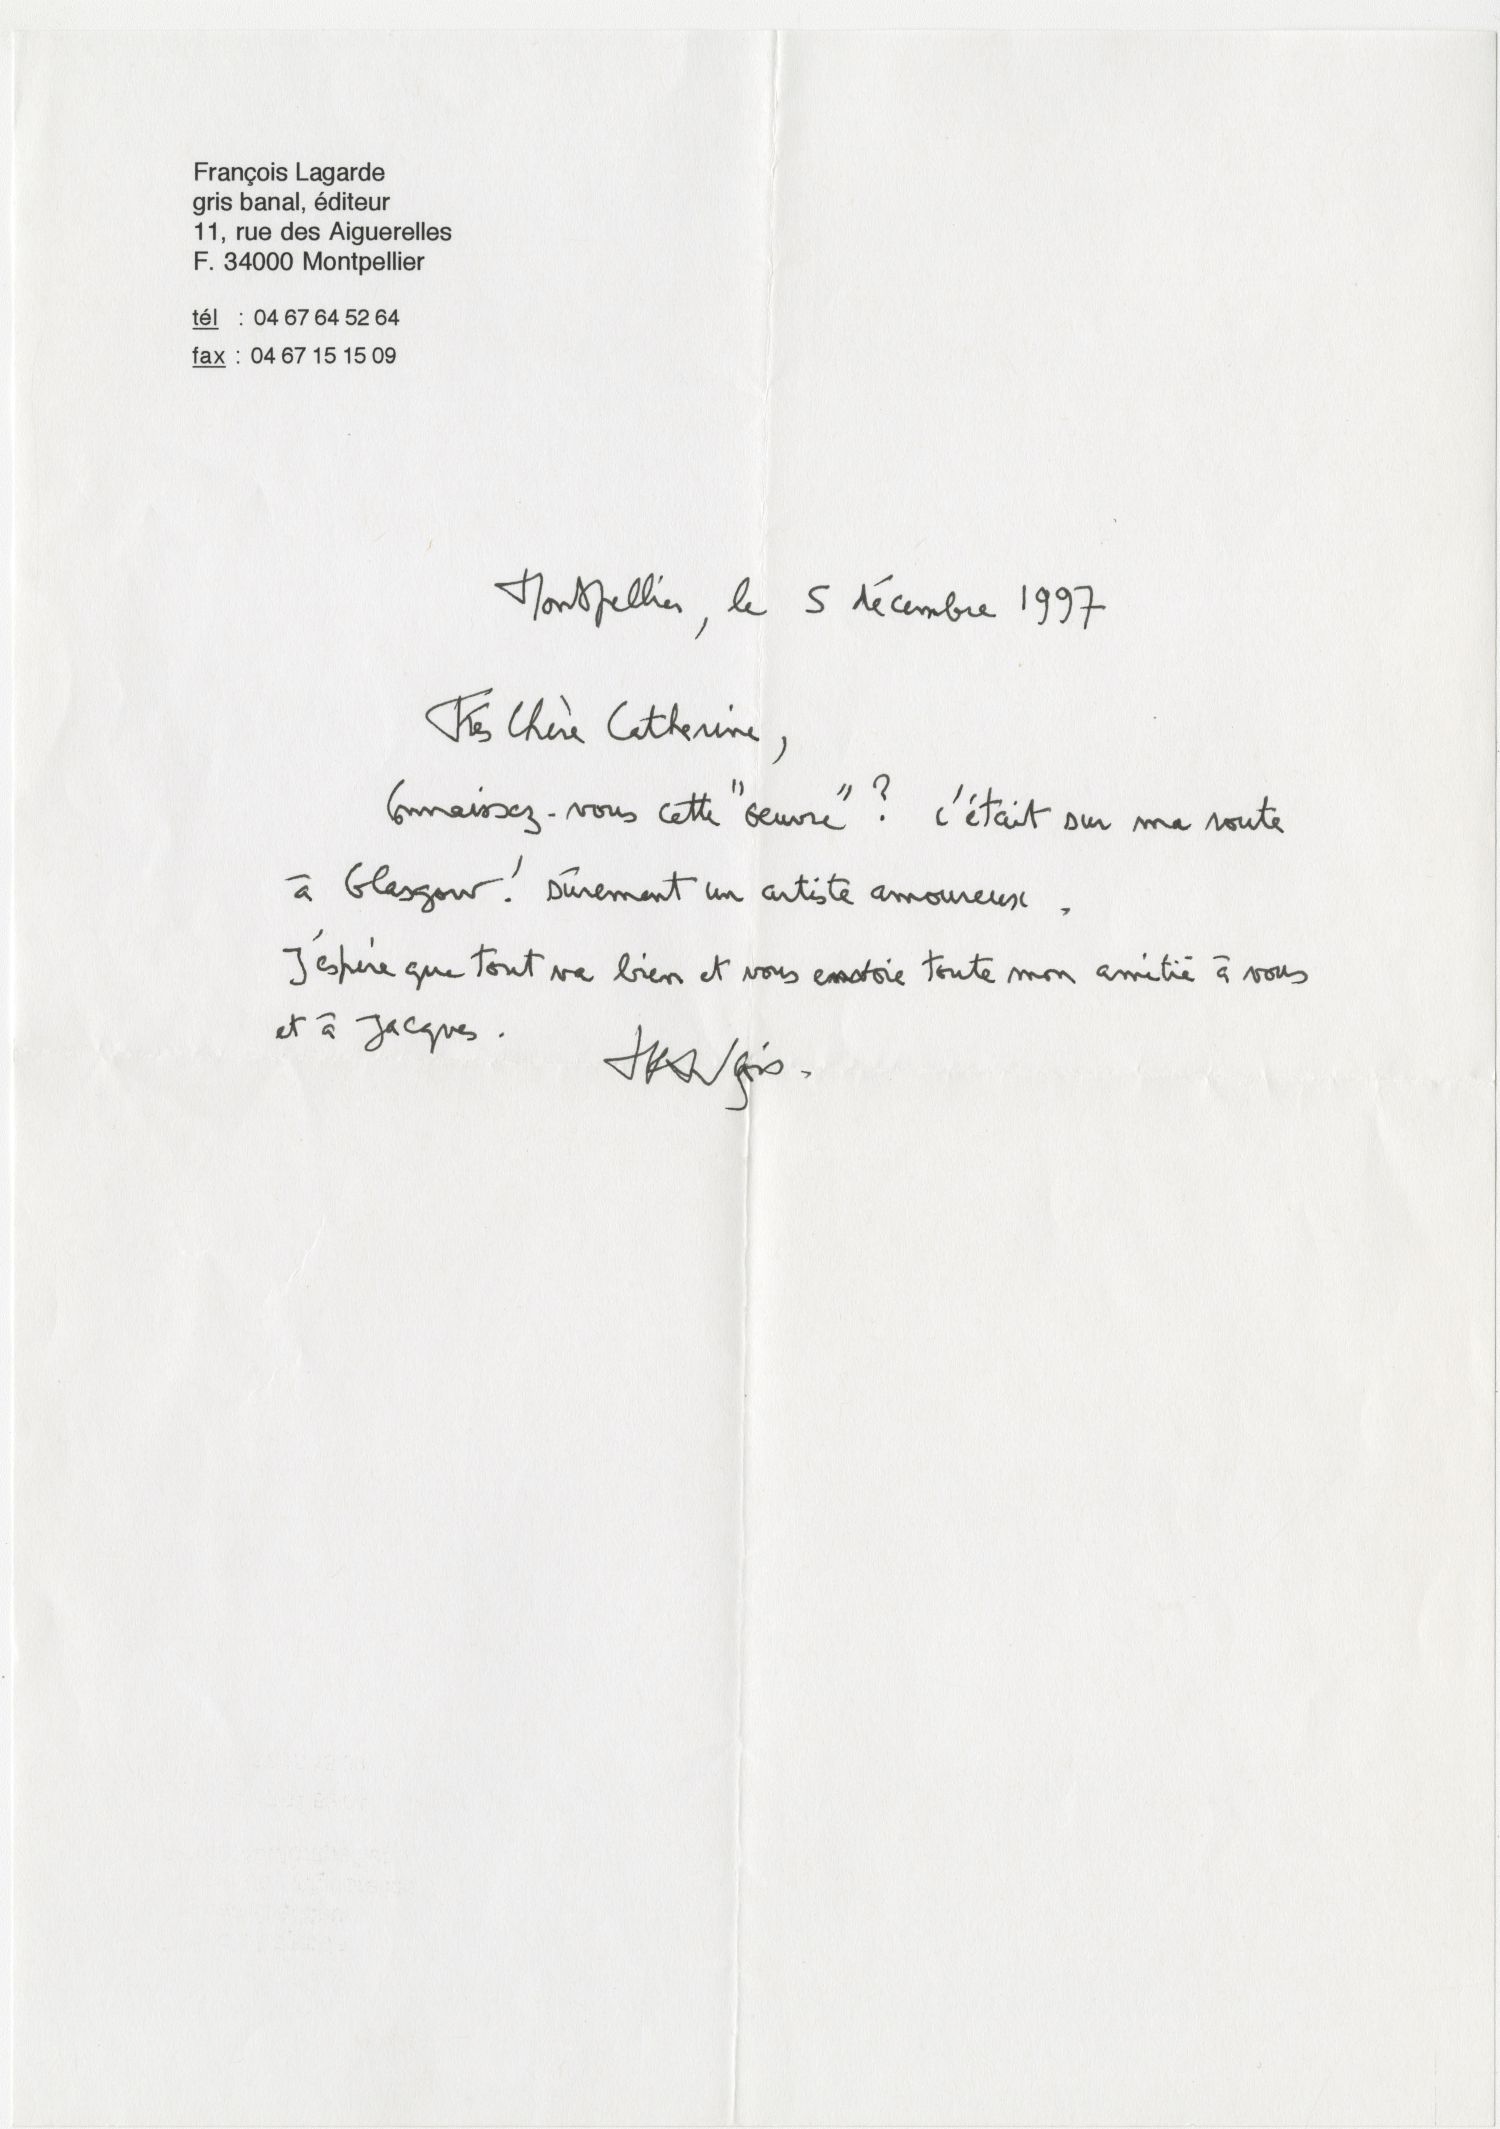 François Lagarde
gris banal, éditeur
11, rue des Aiguerelles
F. 34000 Montpellier
tél : 04 67 64 52 64
fax : 04 67 15 15 09
Montpellier, le 5 décembre 1997
Très Chère Catherine,
Connaissez-vous cette "oeuvre" ? c'était sur ma route
à Glasgow ! Sûrement un artiste amoureux.
J'espère que tout va bien et vous envoie toute mon amitié à vous
et à Jacques.
François.